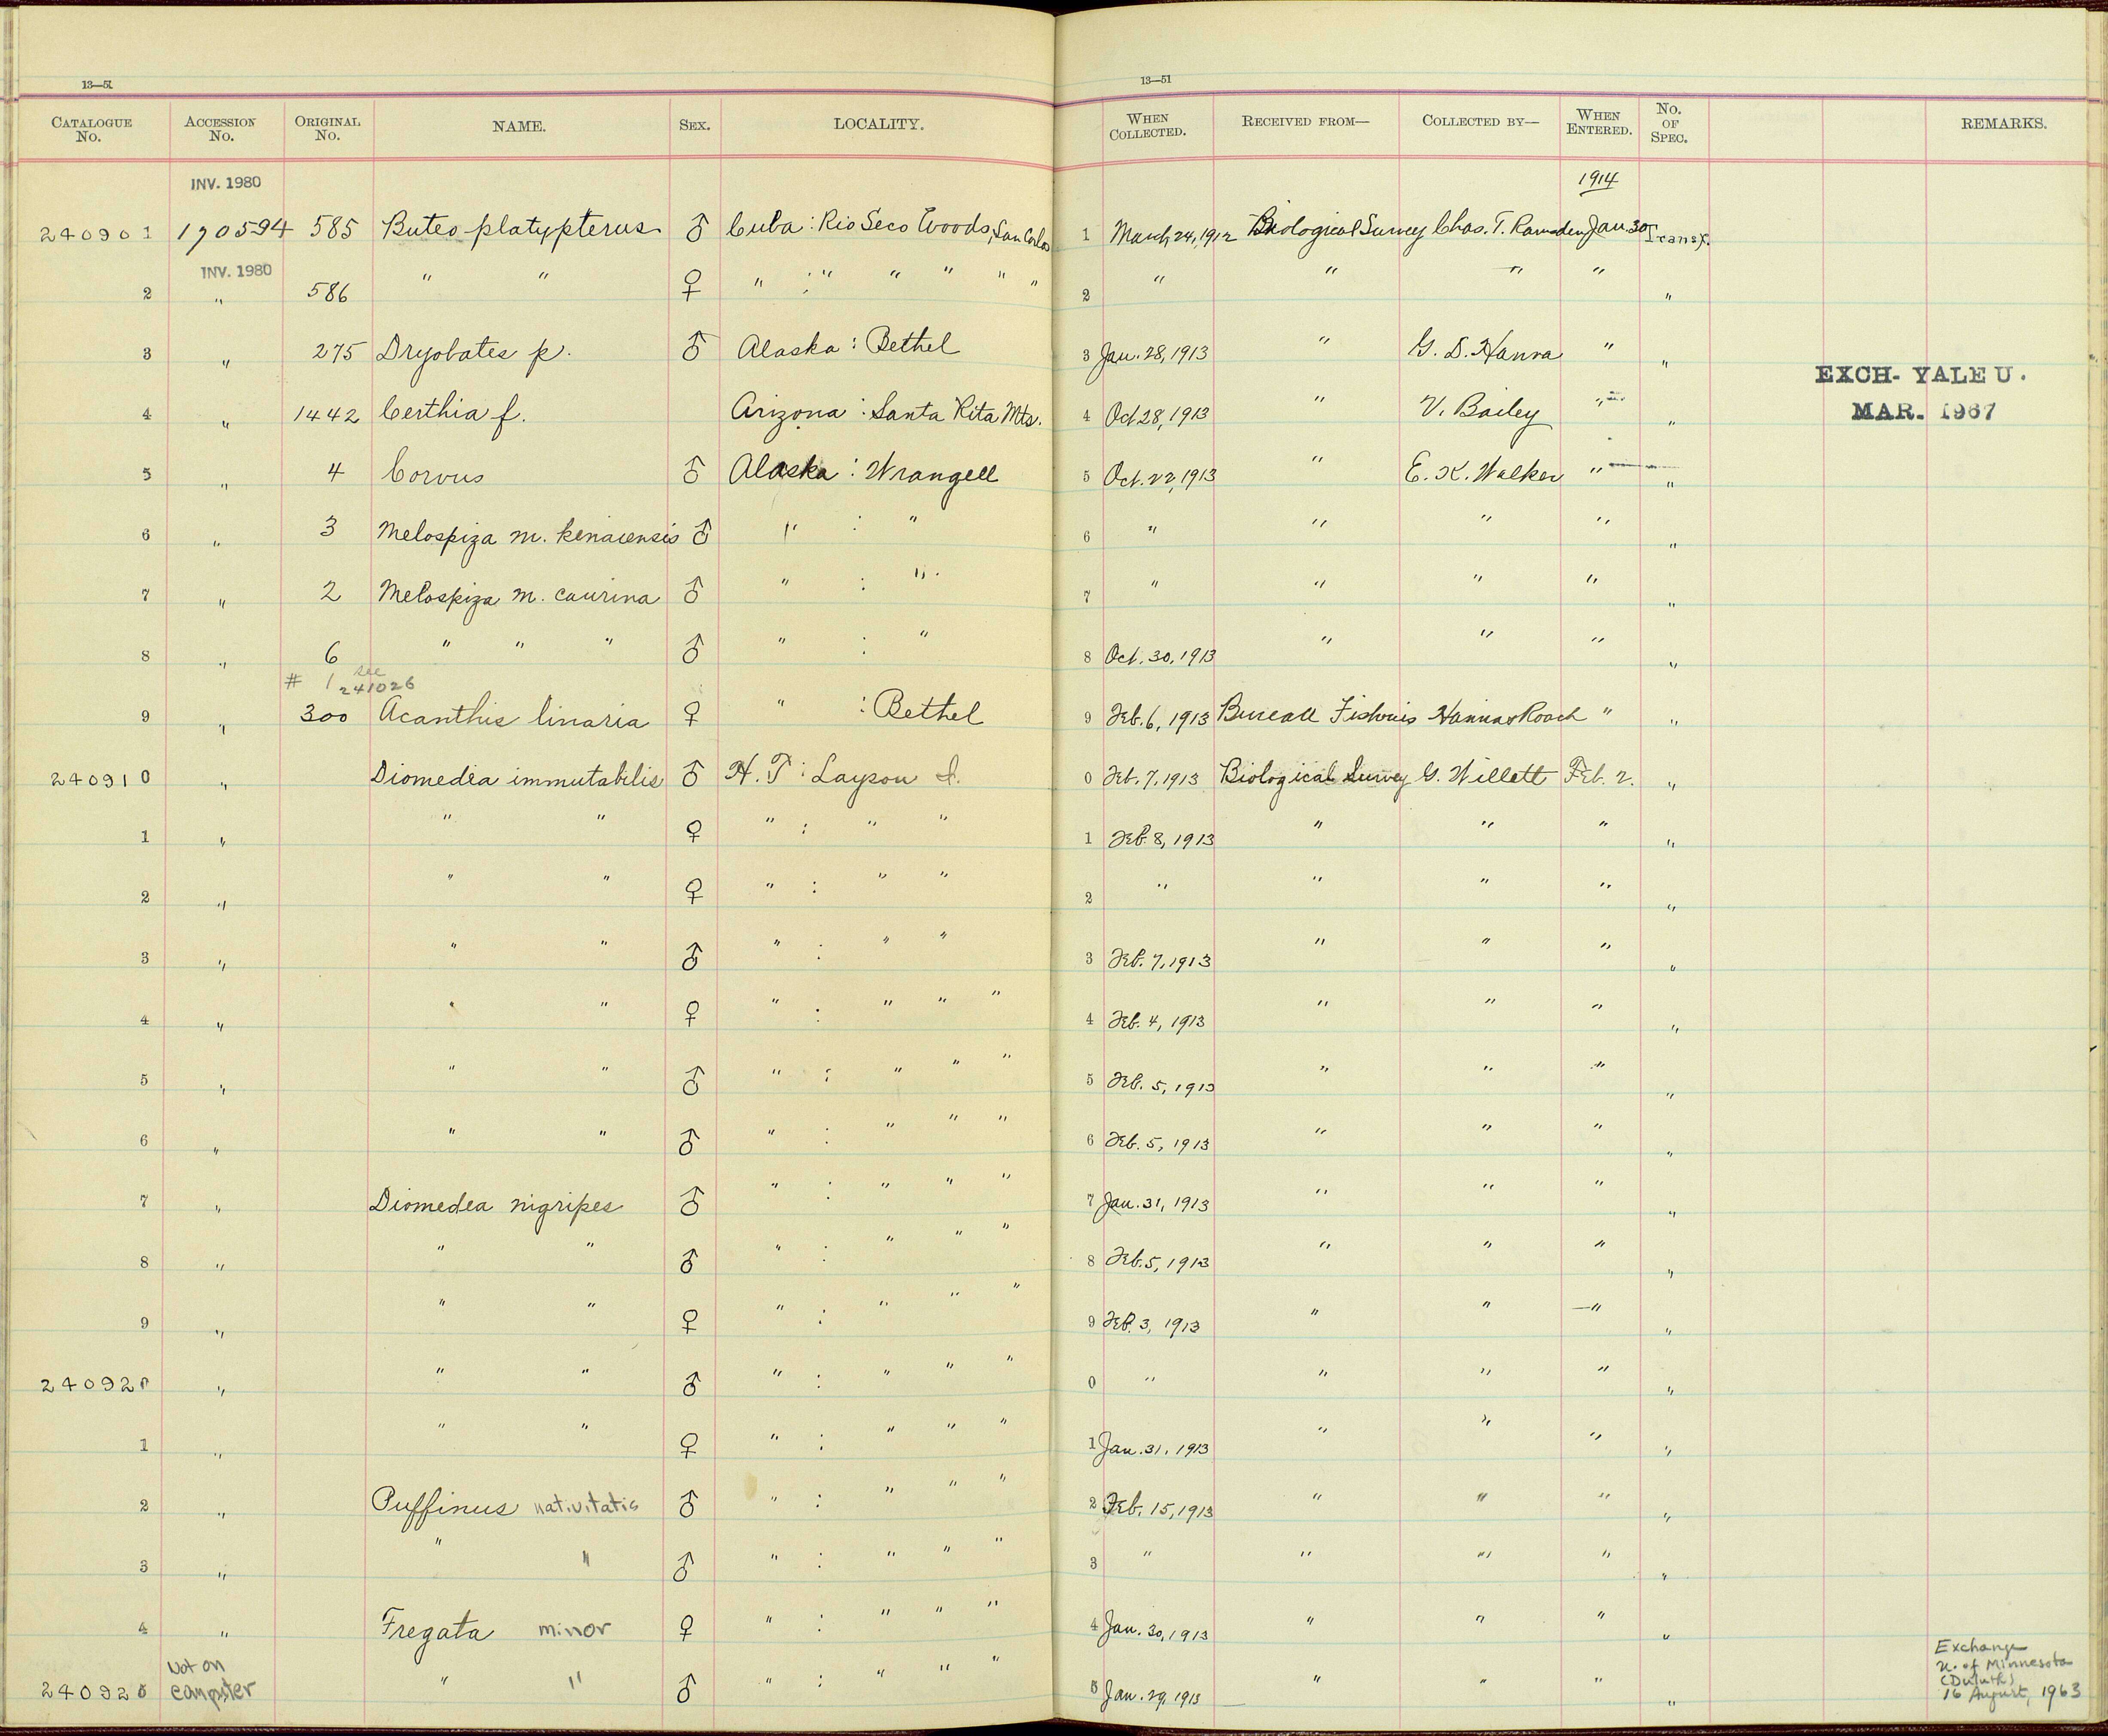 13—51 13—51
CATALOGUE No. ACCESSION No. ORIGINAL No. NAME. SEX. LOCALITY. WHEN COLLECTED. RECEIVED FROM— COLLECTED BY— WHEN ENTERED. No. OF SPEC. REMARKS.
INV. 1980 1914
240901 170594 585 Buteo platypterus ♂ Cuba : Rio Seco Woods, San Carlos 1 March 24, 1912 Biological Survey Chas. T. Ramsden Jan. 30 Transf.
INV. 1980
2 " 586 " " ♀ " : " " " " " 2 " " " " "
3 " 275 Dryobates p. ♂ Alaska : Bethel 3 Jan. 28, 1913 " G. D. Hanna " "
EXCH- YALE U.
MAR. 1967
4 " 1442 Certhia f. Arizona : Santa Rita Mts. 4 Oct 28, 1913 " V. Bailey " "
5 " 4 Corvus ♂ Alaska : Wrangell 5 Oct. 22, 1913 " E. K. Walker " "
6 " 3 Melospiza m. kenaiensis ♂ " : " 6 " " " " "
7 " 2 Melospiza m. caurina ♂ " : " 7 " " " " "
8 " 6 " " " ♂ " : " 8 Oct. 30, 1913 " " " "
# 1 see 241026
9 " 300 Acanthis linaria ♀ " : Bethel 9 Feb. 6, 1913 Bureau Fisheries Hanna & Roach " "
240910 " Diomedea immutabilis ♂ H. T : Laysan I. 0 Feb. 7, 1913 Biological Survey G. Willett Feb. 2. "
1 " " " ♀ " : " " 1 Feb. 8, 1913 " " " "
2 " " " ♀ " : " " 2 " " " " "
3 " " " ♂ " : " " 3 Feb. 7, 1913 " " " "
4 " " " ♀ " : " " " 4 Feb. 4, 1913 " " " "
5 " " " ♂ " : " " " 5 Feb. 5, 1913 " " " "
6 " " " ♂ " : " " " 6 Feb. 5, 1913 " " " "
7 " Diomedea nigripes ♂ " : " " " 7 Jan. 31, 1913 " " " "
8 " " " ♂ " : " " " 8 Feb. 5, 1913 " " " "
9 " " " ♀ " : " " " 9 Feb. 3, 1913 " " " "
240920 " " " ♂ " : " " " 0 " " " " "
1 " " " ♀ " : " " " 1 Jan. 31. 1913 " " " "
2 " Puffinus nativitatis ♂ " : " " " 2 Feb. 15, 1913 " " " "
3 " " " ♂ " : " " " 3 " " " " "
4 " Fregata minor ♀ " : " " " 4 Jan. 30, 1913 " " " "
240925 Not on computer " " ♂ " : " " " 5 Jan. 29, 1913 " " " "
Exchange
U. of Minnesota
(Duluth)
16 August, 1963